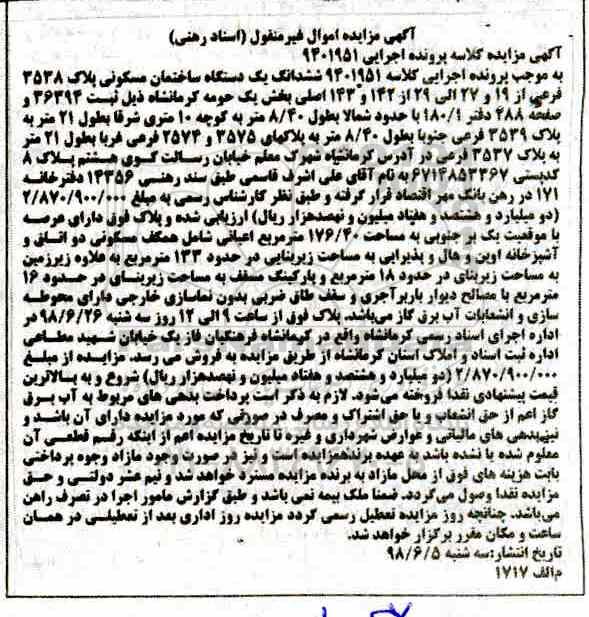 آگهی مزایده اموال غیرمنقول (اسناد رهنی)
آگهی مزایده کلاسه پرونده اجرایی ۹۴۰۱۹۵۱
به موجب پرونده اجرایی کلاسه ۹۴۰۱۹۵۱ ششدانگ یک دستگاه ساختمان مسکونی پلاک ۳۵۳۸
فرعی از ۱۹ و ۲۷ الی ۲۹ از ۱۴۲ و ۱۴۳ اصلی بخش یک حومه کرمانشاه ذیل ثبت ۳۶۳۹۴ و
صفحه ۴۸۸ دفتر ۱۸۰/۱ با حدود شمالا بطول ۸/۴۰ متر به کوچه ۱۰ متری شرقا بطول ۲۱ متر به
پلاک ۳۵۳۹ فرعی جنوبا بطول ۸/۴۰ متر به پلاکهای ۳۵۷۵ و ۲۵۷۴ فرعی غربا بطول ۲۱ متر
به پلاک ۳۵۳۷ فرعی در آدرس کرمانشاه شهرک معلم خیابان رسالت کوی هشتم پلاک ۸
کدپستی ۶۷۱۴۸۵۳۳۶۷ به نام آقای علی اشرف قاسمی طبق سند رهنی ۱۴۳۵۶ دفترخانه
۱۷۱ در رهن بانک مهر اقتصاد قرار گرفته و طبق نظر کارشناس رسمی به مبلغ ۲/۸۷۰/۹۰۰/۰۰۰
(دو میلیارد و هشتصد و هفتاد میلیون و نهصدهزار ریال) ارزیابی شده و پلاک فوق دارای عرصه
با موقعیت یک بر جنوبی به مساحت ۱۷۶/۴۰ مترمربع اعیانی شامل همکف مسکونی دو اتاق و
آشپزخانه اوپن و هال و پذیرایی به مساحت زیربنایی در حدود ۱۳۳ مترمربع به علاوه زیرزمین
به مساحت زیربنای در حدود ۱۸ مترمربع و پارکینگ مسقف به مساحت زیربنای در حدود ۱۶
مترمربع با مصالح دیوار باربرآجری و سقف طاق ضربی بدون نماسازی خارجی دارای محوطه
سازی و انشعابات آب برق گاز می‌باشد. پلاک فوق از ساعت ۹ الی ۱۲ روز سه شنبه ۹۸/۶/۲۶ در
اداره اجرای اسناد رسمی کرمانشاه واقع در کرمانشاه فرهنگیان فاز یک خیابان شهید مطاعی
اداره ثبت اسناد و املاک استان کرمانشاه از طریق مزایده به فروش می رسد. مزایده از مبلغ
۲/۸۷۰/۹۰۰/۰۰۰ (دو میلیارد و هشتصد و هفتاد میلیون و نهصدهزار ریال) شروع و به بالاترین
قیمت پیشنهادی نقدا فروخته می‌شود. لازم به ذکر است پرداخت بدهی های مربوط به آب برق
گاز اعم از حق انشعاب و یا حق اشتراک و مصرف در صورتی که مورد مزایده دارای آن باشد و
نیزبدهی های مالیاتی و عوارض شهرداری و غیره تا تاریخ مزایده اعم از اینکه رقم قطعی آن
معلوم شده یا نشده باشد به عهده برندهمزایده است و نیز در صورت وجود مازاد وجوه پرداختی
بابت هزینه های فوق از محل مازاد به برنده مزایده مسترد خواهد شد و نیم عشر دولتی و حق
مزایده نقدا وصول می‌گردد. ضمنا ملک بیمه نمی باشد و طبق گزارش مامور اجرا در تصرف راهن
می‌باشد. چنانچه روز مزایده تعطیل رسمی گردد مزایده روز اداری بعد از تعطیلی در همان
ساعت و مکان مقرر برگزار خواهد شد.
تاریخ انتشار:سه شنبه ۹۸/۶/۵
م‌الف ۱۷۱۷